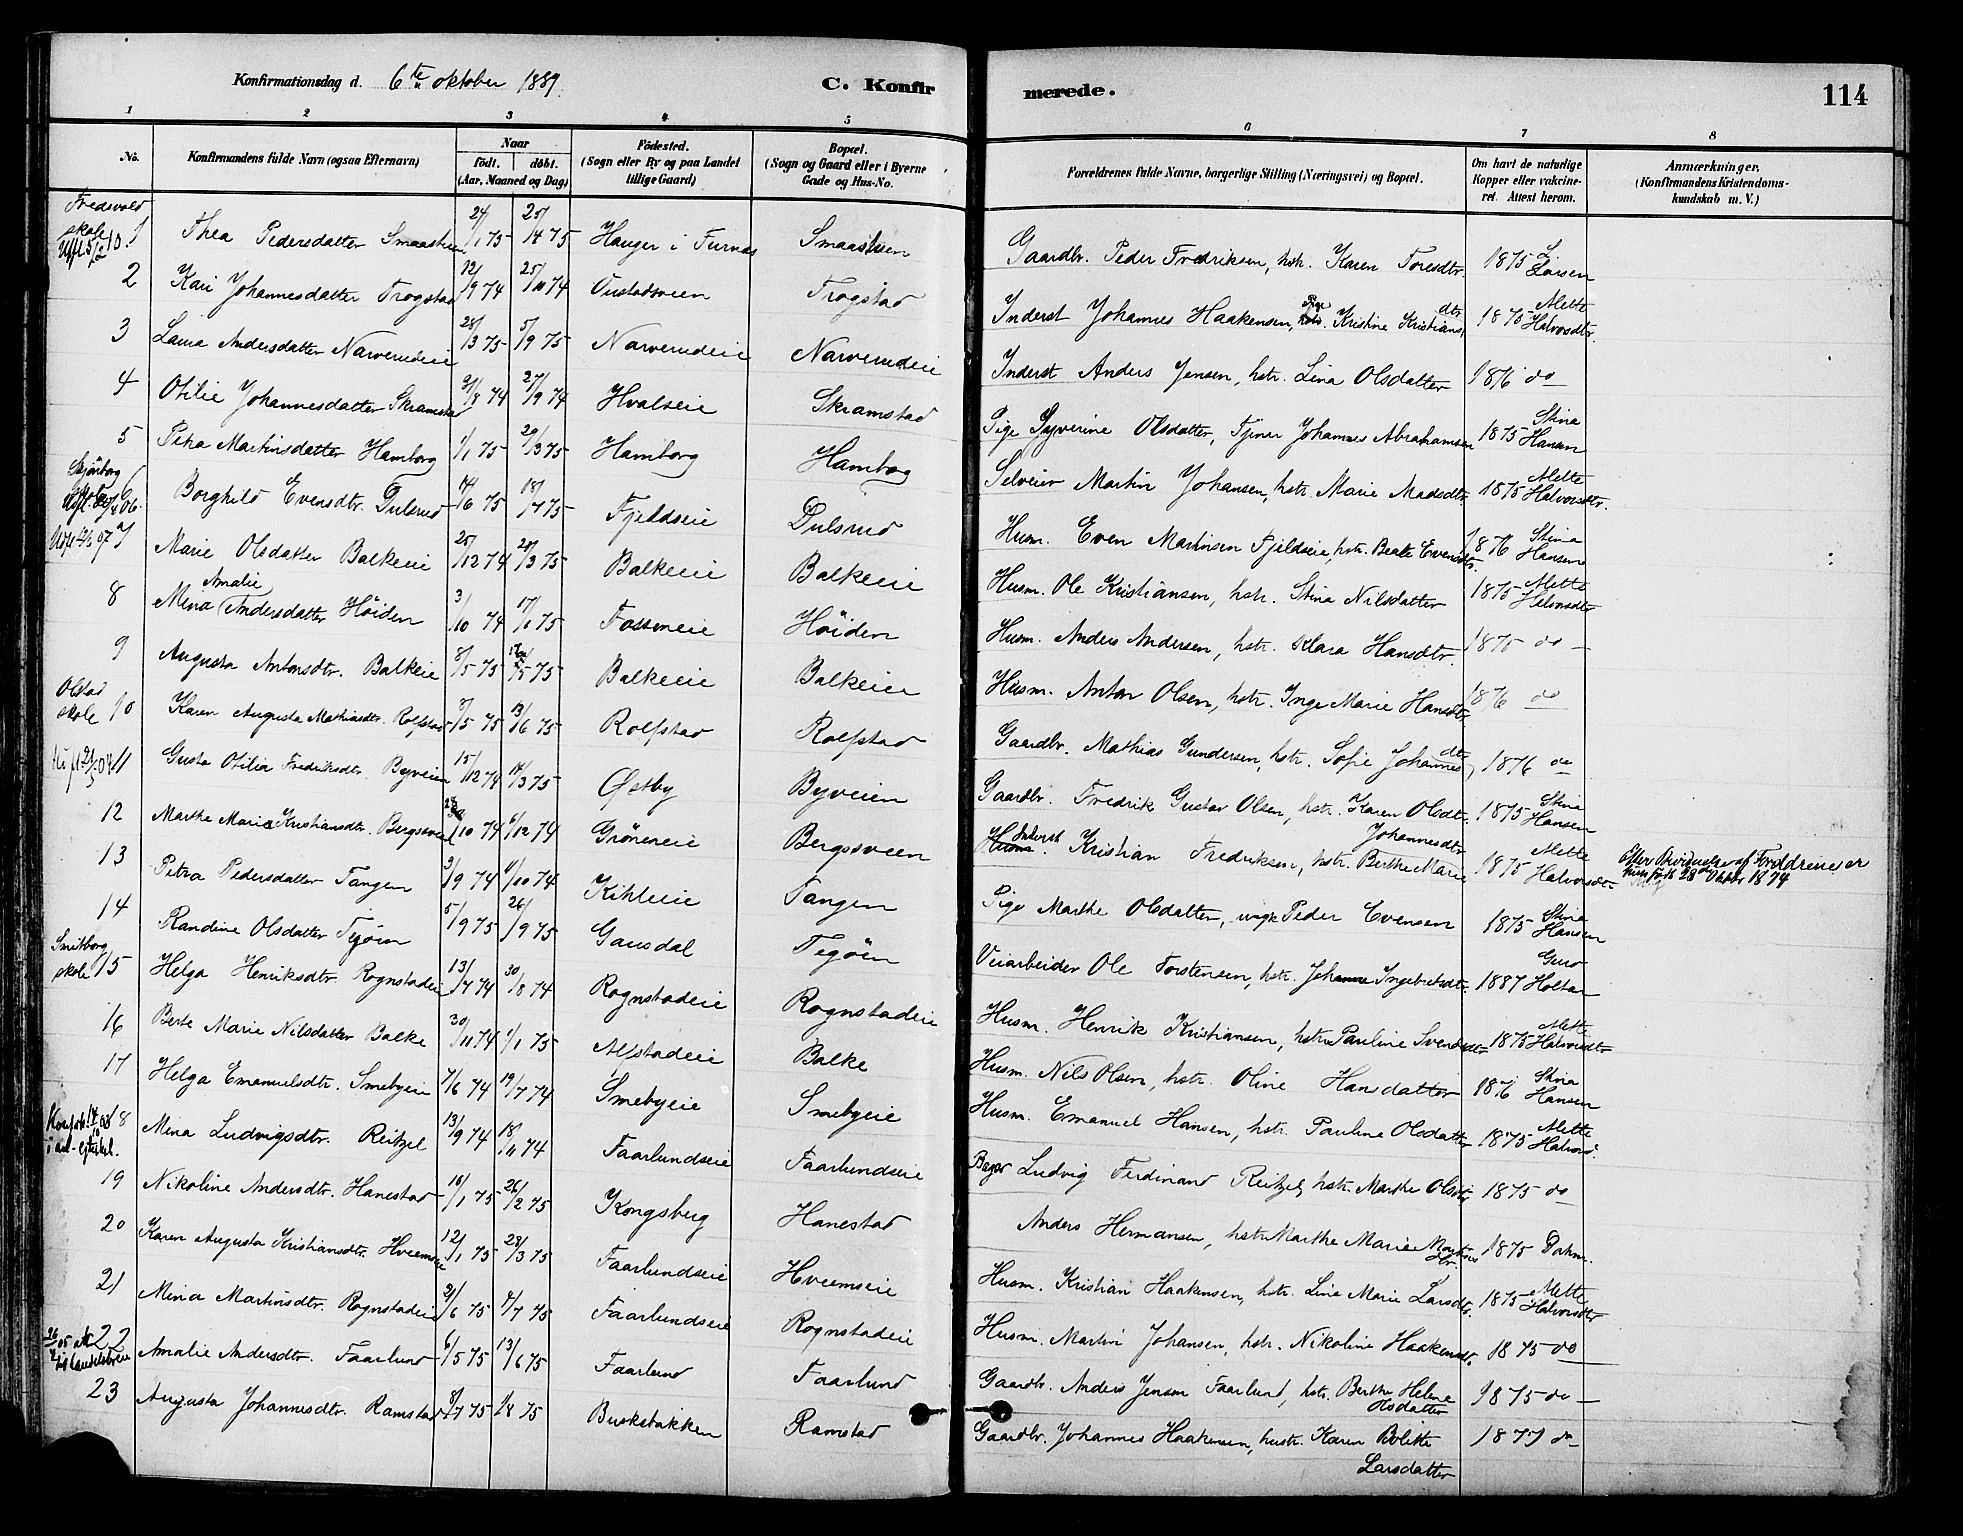 Konfirmationsdag d. 6te oktober 1889.
C. Konfirmerede.
114
1 2 3 4 5 6 7 8
No.
Konfirmandens fulde Navn (ogsaa Efternavn)
Naar
født. døbt.
(Aar, Maaned og Dag)
Fødested.
(Sogn eller By og paa Landet
tillige Gaard)
Bopæl.
(Sogn og Gaard eller i Byerne
Gade og Hus-No.
Forældrenes fulde Navne, borgerlige Stilling (Næringsvei) og Bopæl.
Om havt de naturlige
Kopper eller vakcine-
ret. Attest herom.
Anmærkninger.
(Konfirmandens Kristendoms-
kundskab m. V.)
skole
1 Thea Pedersdatter Smaastuen 24/1 75 25/4 75 Hauger i Furnæs Smaastuen Gaardbr. Peder Fredriksen, hstr. Karen Toresdtr. 1875 L. Larsen
2 Kari Johannesdatter Trogstad 12/9 74 25/10 74 Trogstad Inderst Johannes Haakensen, Pige Kristine Kristiansdtr. 1875 Mette Halvorsdtr.
3 Laura Andersdatter Narverudeie 28/3 75 5/9 75 Narverudeie Narverudeie Inderst Anders Jensen, hstr. Lina Olsdatter 1876 do
4 Otilie Johannesdatter Skramstad 3/8 74 27/9 74 Hvalseie Skramstad Pige Syverine Olsdatter, Tjener Johannes Abrahamsen 1875 Stina Hansen
5 Petra Martinsdatter Hamborg 1/1 75 29/3 75 Hamborg Hamborg Selveier Martin Johansen, hstr. Marie Madsdtr. 1875 Mette Halvorsdtr.
6 Borghild Evensdtr. Dulsrud 14/6 75 18/7 75 Fjeldseie Dulsrud Husm. Even Martinsen Fjeldseie, hstr. Beate Evensdtr. 1876 Stina Hansen
7 Marie Olsdatter Balkeeie 25/12 74 29/3 75 Balkeeie Balkeeie Husm. Ole Kristiansen, hstr. Stina Nilsdatter 1875 Mette Halvorsdtr
8 Mina Amalie Andersdatter Höiden 3/10 74 17/1 75 Höiden Husm. Anders Andersen, hstr. Klara Hansdtr. 1875 do
9 Augusta Antonsdtr. Balkeie 8/5 75 75 Balkeeie Balkeeie Husm. Anton Olsen, hstr. Inge Marie Hansdtr 1876 do
Olstad
skole
10 Karen Augusta Mathiasdtr. Rolfstad 75 13/6 75 Rolfstad Rolfstad Gaardbr. Mathias Gundersen, hstr. Sofie Johannesdtr 1876 do
11 Gusta Otilia Fredriksdtr. Byveien 15/12 74 14/3 75 Østby Byveien Gaardbr. Fredrik Gustav Olsen, hstr. Karen Olsdtr. 1875 Stina Hansen
12 Marthe Marie Kristiansdtr. Bergsveen 10 74 6/12 74 Gröneneie Bergsveen Husm. Inderst Kristian Fredriksen, hstr. Berthe Marie Johannesdtr 1875 Mette Halvorsdtr.
Forældrene er
født 28de Oktbr 1874
13 Petra Pedersdatter Tangen 3/9 74 4/10 74 Kihleeie Tangen Pige Marthe Olsdatter, ungk Peder Evensen 1875 Stina Hansen
14 Randine Olsdatter Tegöen 5/9 75 26/9 75 Gausdal Tegöen Veiarbeider Ole Torstensen, hstr. Johanne Ingebretsdtr. 1887 Guro Holtar
Smeborg
skole
15 Helga Henriksdtr. Rognstadeie 13/7 74 30/8 74 Rognstadeie Rognstadeie Husm. Henrik Kristiansen, hstr. Pauline Svendsdtr 1875 Mette Halvorsdtr
16 Berte Marie Nilsdatter Balke 30/11 74 1/1 75 Alfstadeie Balke Husm. Nils Olsen, hstr. Oline Hansdatter 1876 Stina Hansen
17 Helga Emanuelsdtr. Smebyeie 7/6 74 19/7 74 Smebyeie Smebyeie Husm. Emanuel Hansen, hstr. Pauline Olsdatter 1875 Mette Halvorsd.
18 Mina Ludvigsdtr. Reitzel 13/9 74 18/11 74 Faarlundseie Faarlundseie Bager Ludvig Ferdinand Reitzel, hstr. Marthe Olsdtr 1875 do
19 Nikoline Andersdtr. Hanestad 16/1 75 26/2 75 Kongsberg Hanestad Anders Hermansen, hstr. Marthe Marie 1875 Dahm.
20 Karen Augusta Kristiansdtr. Hveemseie 12/1 75 28/3 75 Faarlundseie Hveemseie Husm. Kristian Haakensen, hstr. Lina Marie Larsdtr. 1875 Mette Halvorsdtr
21 Mina Martinsdtr. Rognstadeie 21/6 75 4/7 75 Faarlundseie Rognstadeie Husm. Martin Johansen, hstr. Nikoline Haakensdtr. 1875 do
22 Amalie Andersdtr. Faarlund 6/5 75 13/6 75 Faarlund Faarlund Gaardbr. Anders Jensen Faarlund, hstr. Berthe Helene Olsdatter 1875 do
23 Augusta Johannesdtr. Ramstad 8/7 75 1/8 75 Buskebakken Ramstad Gaardbr. Johannes Haakensen, hustr. Karen Bolette Larsdatter 1877 do